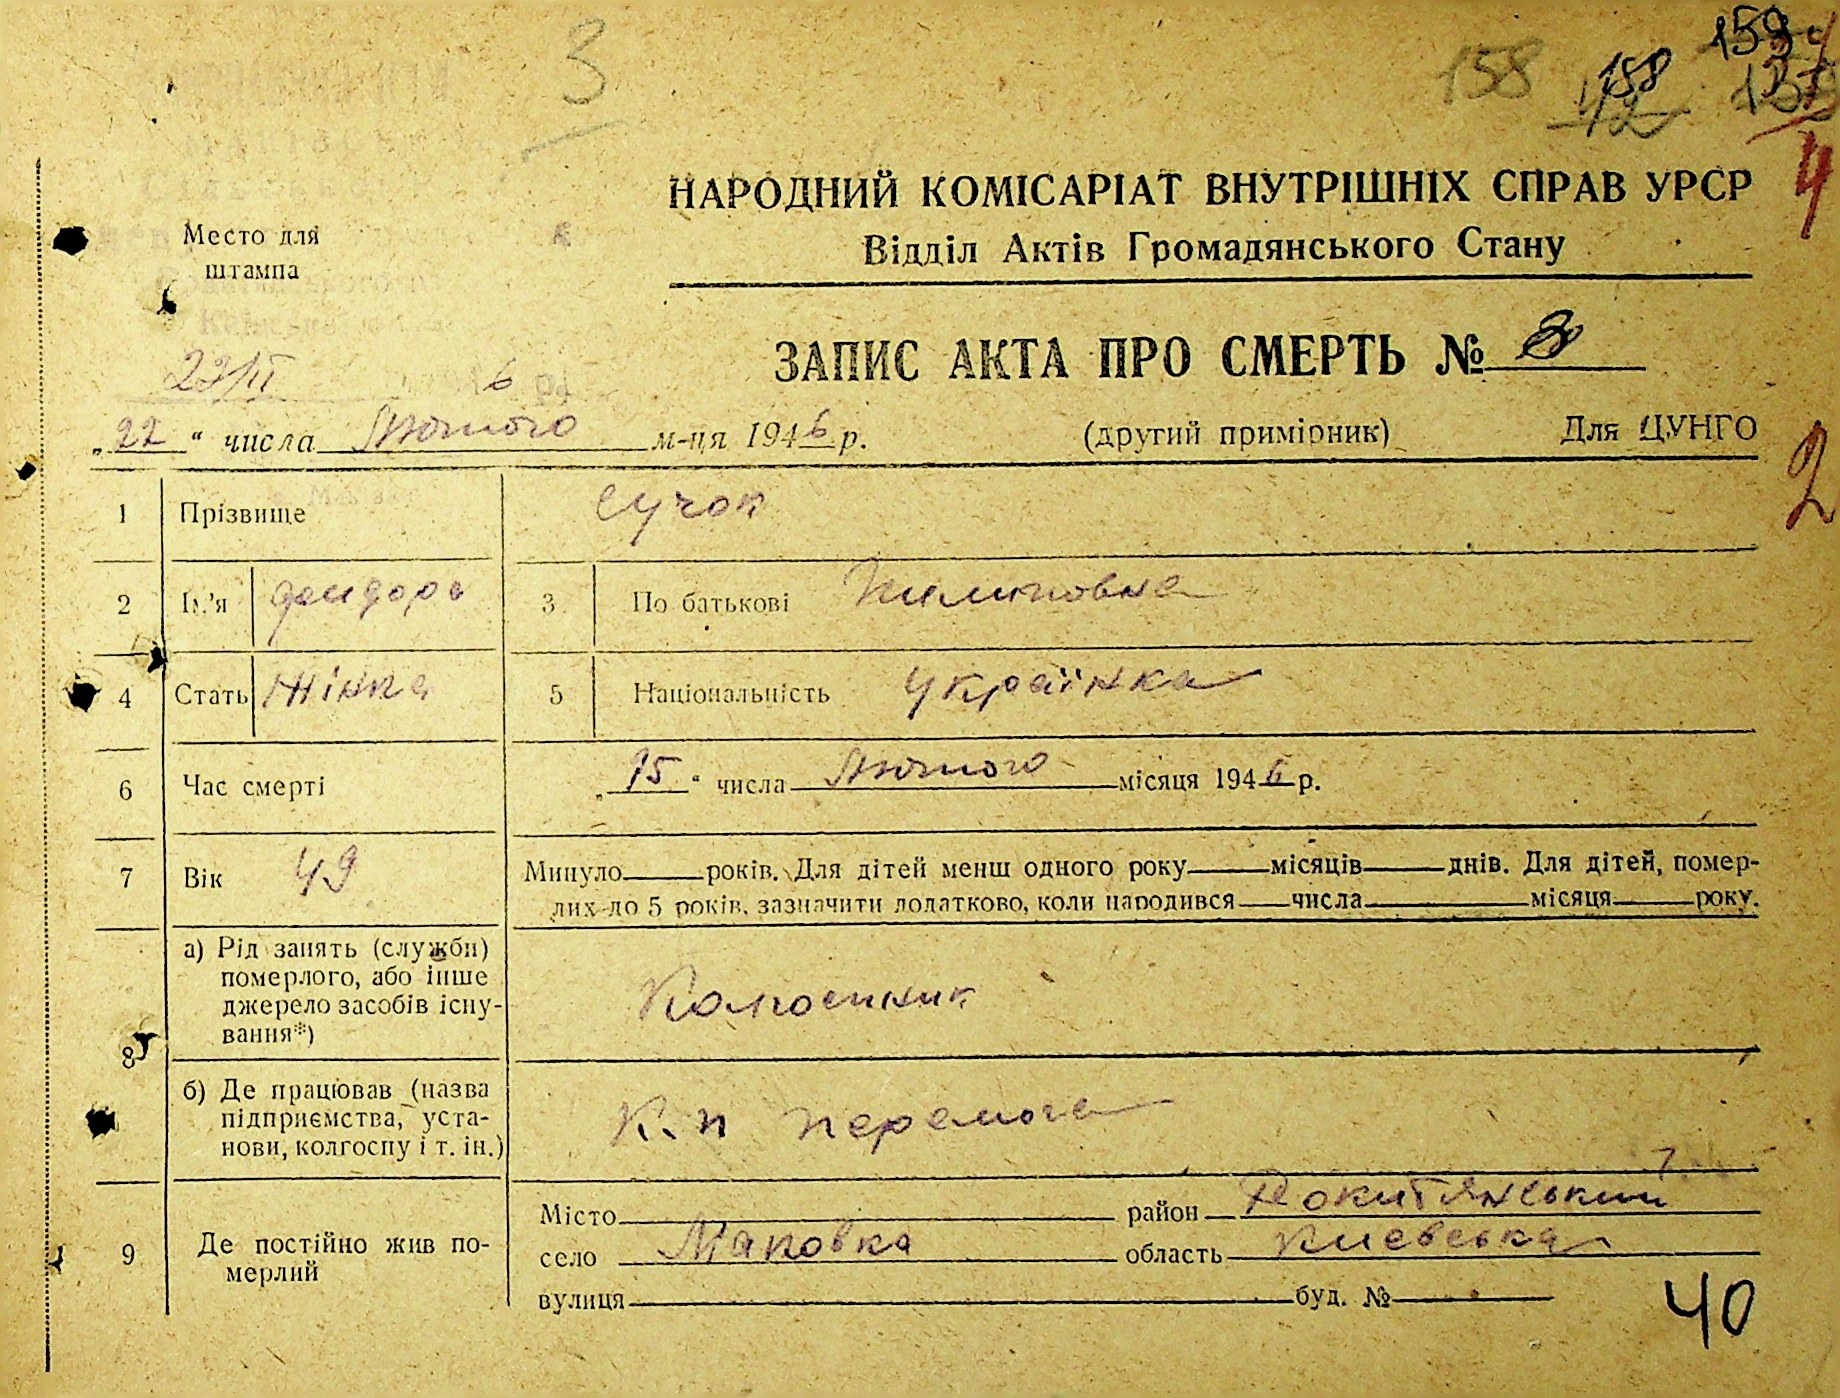 3
158
158
42
159
4
НАРОДНИЙ КОМІСАРІАТ ВНУТРІШНІХ СПРАВ УРСР
Відділ Актів Громадянського Стану
Место для
штампа
ЗАПИС АКТА ПРО СМЕРТЬ №
23/II 6
„22“ числа Лютого м-ця 1946 р. (другий примірник) Для ЦУНГО
2
1 Прізвище Сучок
2 Ім'я 3 По батькові
4 Стать Жінка 5 Національність Українка
6 Час смерті „15“ числа Лютого місяця 1946 р.
7 Вік 49 Минуло років. Для дітей менш одного року місяців днів. Для дітей, помер-
лих до 5 років, зазначити додатково, коли народився числа місяця року.
8 а) Рід занять (служби)
померлого, або інше
джерело засобів існу-
вання*)
б) Де працював (назва
підприємства, уста-
нови, колгоспу і т. ін.)
К. п перемога
9 Де постійно жив по-
мерлий
Місто район Рокитянський
село Маковка область Киевська
вулиця буд. №
40